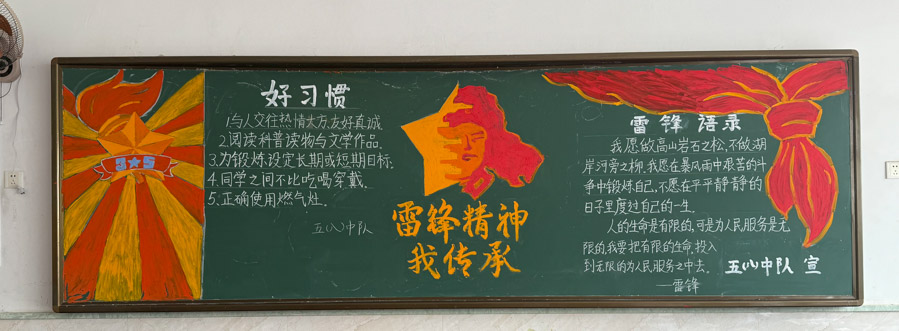 3·5
好习惯
1.与人交往热情大方,友好真诚.
2.阅读科普读物与文学作品.
3.为锻炼设定长期或短期目标.
4.同学之间不比吃喝穿戴.
5.正确使用燃气灶.
五(八)中队
雷锋精神
我传承
雷锋 语录
我愿做高山岩石之松,不做湖
岸河旁之柳.我愿在暴风雨中艰苦的斗
争中锻炼自己,不愿在平平静静的
日子里度过自己的一生.
人的生命是有限的,可是为人民服务是无
限的,我要把有限的生命,投入
到无限的为人民服务之中去.
—雷锋
五(八)中队 宣